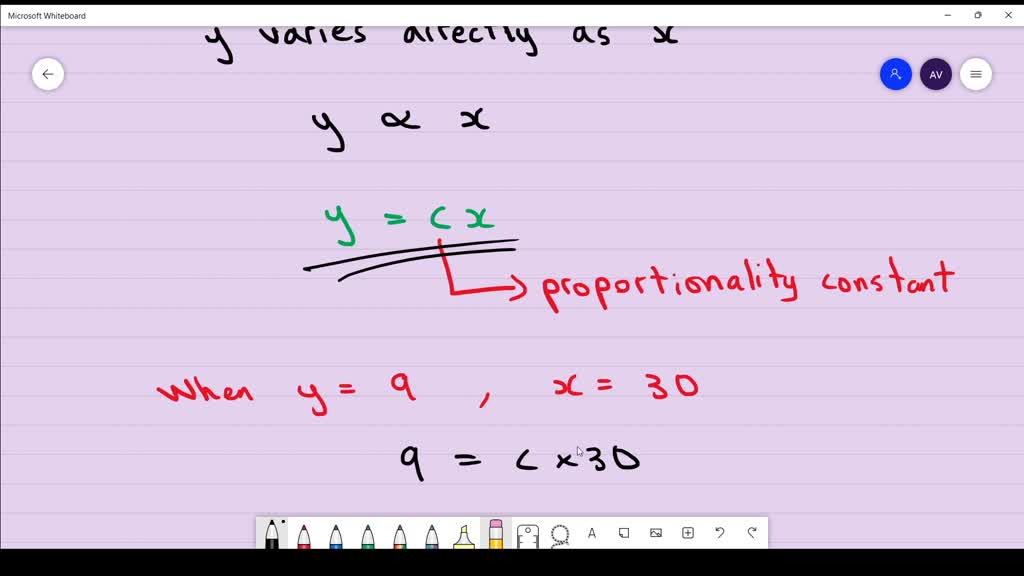 Microsoft Whiteboard
y varies directly as x
AV
y ∝ x
y = cx
proportionality constant
When y = 9 , x = 30
9 = c × 30
A